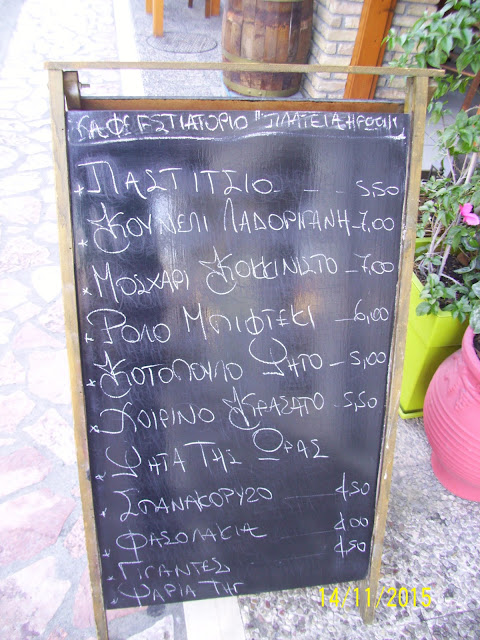 ΚΑΦΕ ΕΣΤΙΑΤΟΡΙΟ "ΠΛΑΤΕΙΑ ΗΡΩΩΝ
* ΠΑΣΤΙΤΣΙΟ - - 5,50
* ΚΟΥΝΕΛΙ ΛΑΔΟΡΙΓΑΝΗ - 7,00
* ΜΟΣΧΑΡΙ ΚΟΚΚΙΝΙΣΤΟ - 7,00
* ΡΟΛΟ ΜΠΙΦΤΕΚΙ - 6,00
* ΚΟΤΟΠΟΥΛΟ ΨΗΤΟ - 5,00
* ΧΟΙΡΙΝΟ ΚΡΑΣΑΤΟ - 5,50
* ΨΗΤΑ ΤΗΣ ΩΡΑΣ
* ΣΠΑΝΑΚΟΡΥΖΟ 4,50
* ΦΑΣΟΛΑΚΙΑ 4,00
* ΓΙΓΑΝΤΕΣ 4,50
* ΨΑΡΙΑ ΤΗΓ
14/11/2015